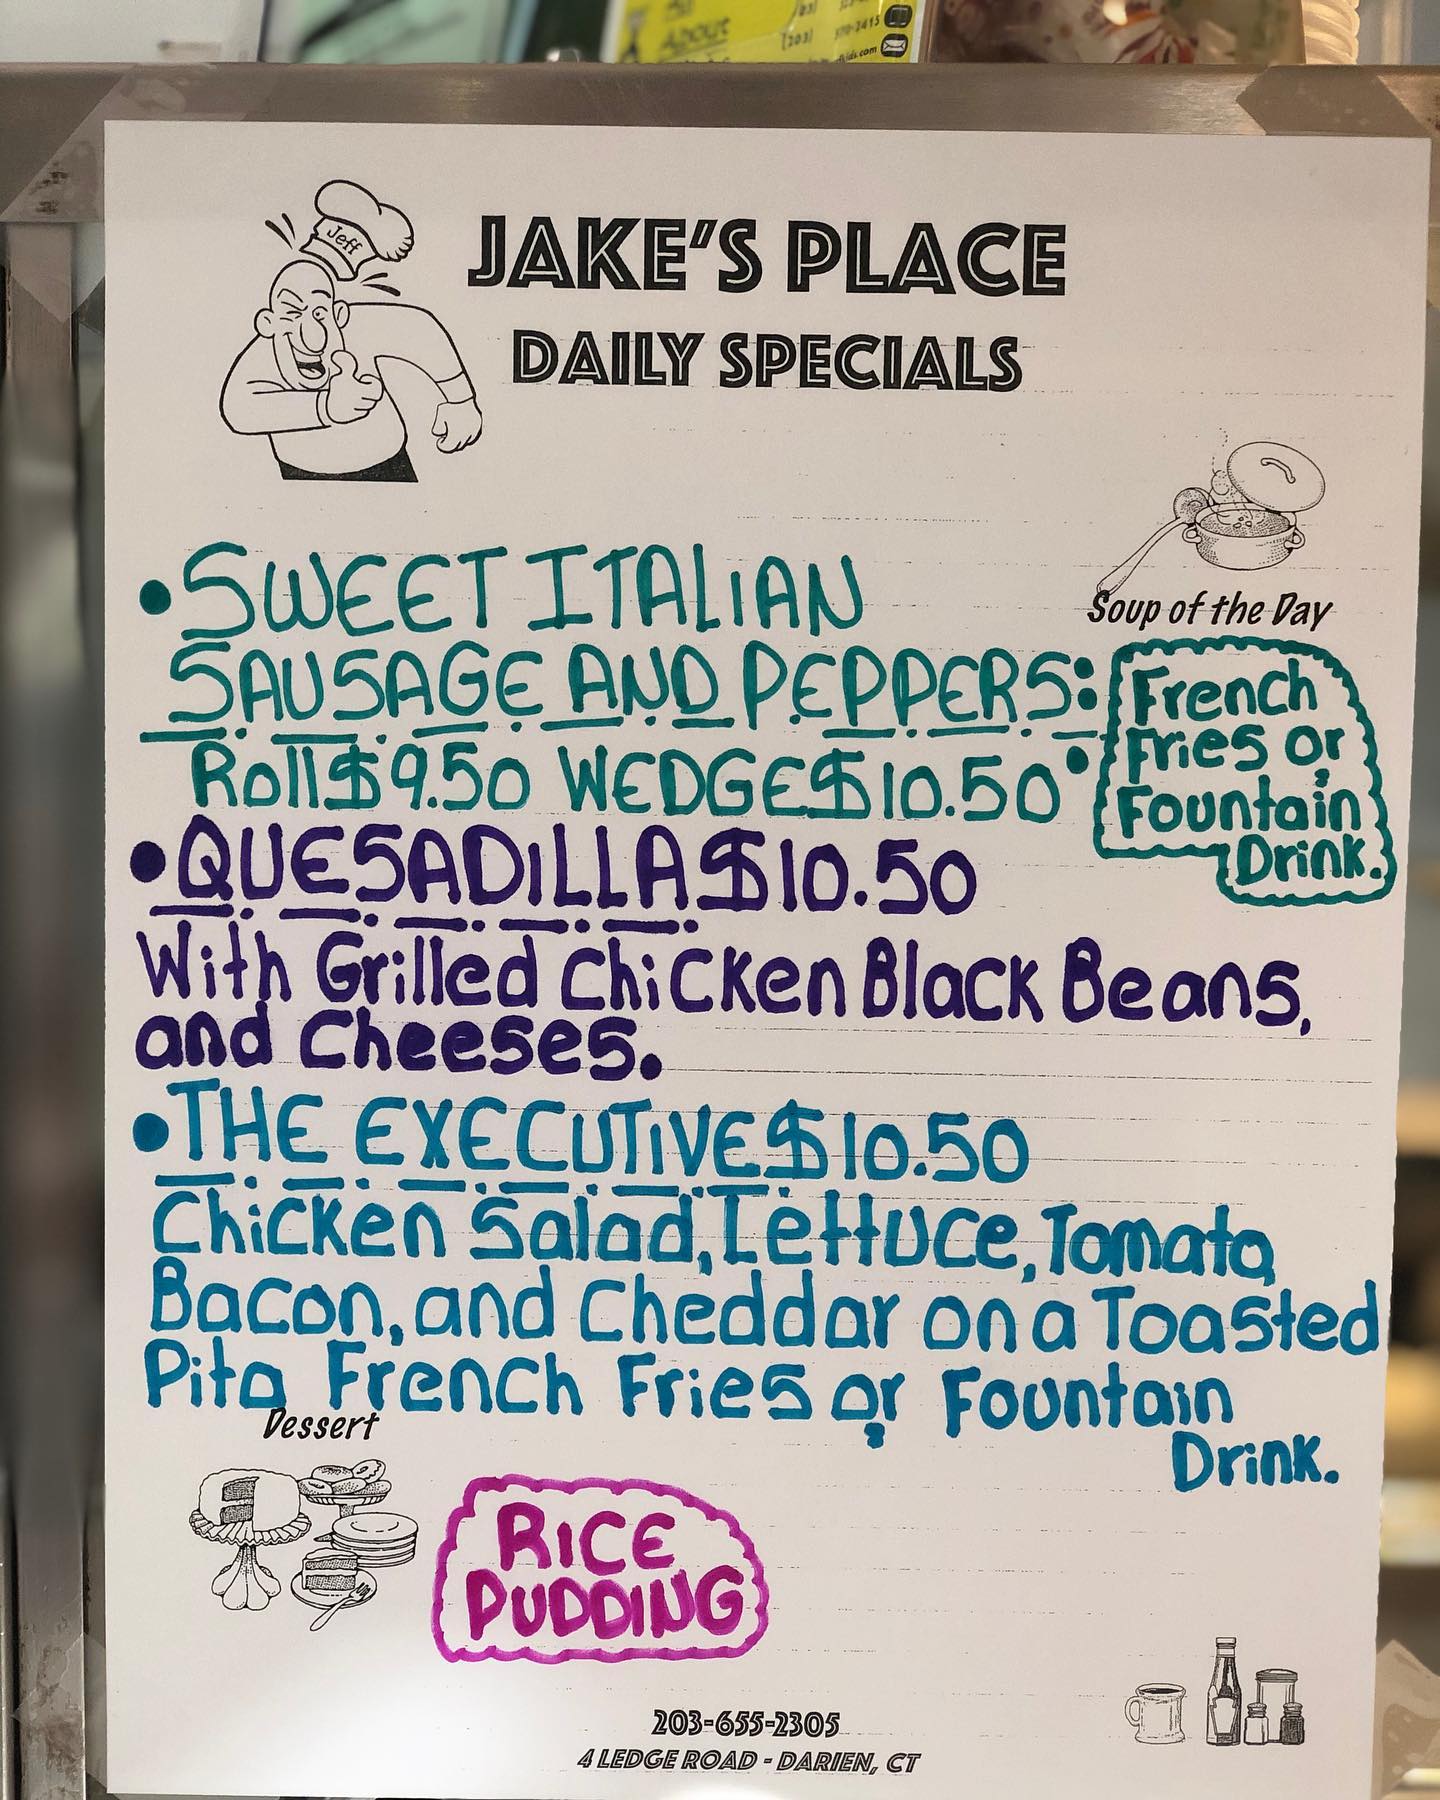 All
ABOUT
(203)
Jeff
JAKE'S PLACE
DAILY SPECIALS
Soup of the Day
• SWEET ITALIAN
SAUSAGE AND PEPPERS:
Roll $9.50 WEDGE $10.50
French
Fries or
Fountain
Drink.
• QUESADILLA $10.50
With Grilled Chicken Black Beans,
and Cheeses.
• THE EXECUTIVE $10.50
Chicken Salad, Lettuce, Tomato,
Bacon, and Cheddar on a Toasted
Pita French Fries or Fountain
Drink.
Dessert
RICE
PUDDING
203-655-2305
4 LEDGE ROAD - DARIEN, CT